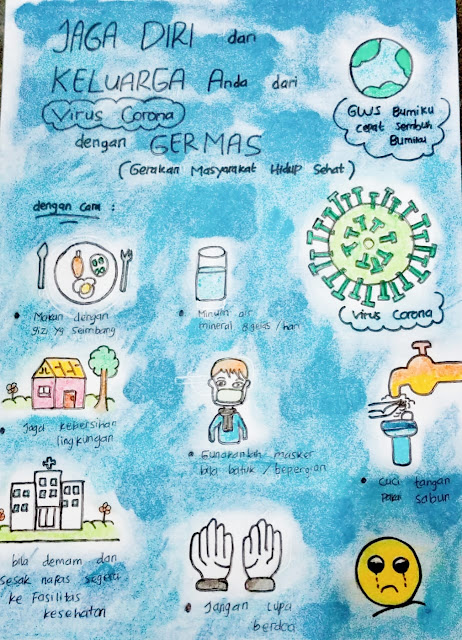 JAGA DIRI dan
KELUARGA Anda dari
Virus Corona
dengan GERMAS
(Gerakan Masyarakat Hidup Sehat)
GWS Bumiku
cepat sembuh
Bumiku
dengan cara :
Makan dengan
gizi yg Seimbang
Minum air
mineral 8 gelas / hari
Virus Corona
Jaga kebersihan
lingkungan
Gunakanlah masker
bila batuk / bepergian
cuci tangan
pakai sabun
bila demam dan
sesak napas segera
ke Fasilitas
kesehatan
Jangan lupa
berdoa